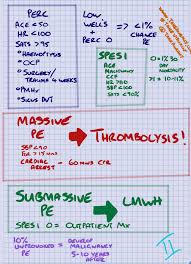 PERC
AGE <50
HR <100
SATS >95
*HAEMOPTYSIS
*OCP
*SURGERY/
TRAUMA 4 WEEKS
*PMHx
*SWELLING DVT
LOW
WELL'S +
PERC 0
<1%
CHANCE
PE
SPESI
AGE
MALIGNANCY
CCF
HR >100
SBP <100
SATS <90%
30 DAY
MORTALITY
0 = 1%
≥1 = 10-11%
MASSIVE
PE
THROMBOLYSIS!
SBP <90
FOR >15 MINS
CARDIAC
ARREST – 60 MINS CPR
SUBMASSIVE
PE
LMWH
SPESI 0 = OUTPATIENT MX
10%
UNPROVOKED
PE
= DEVELOP
MALIGNANCY
5-10 YEARS
AFTER